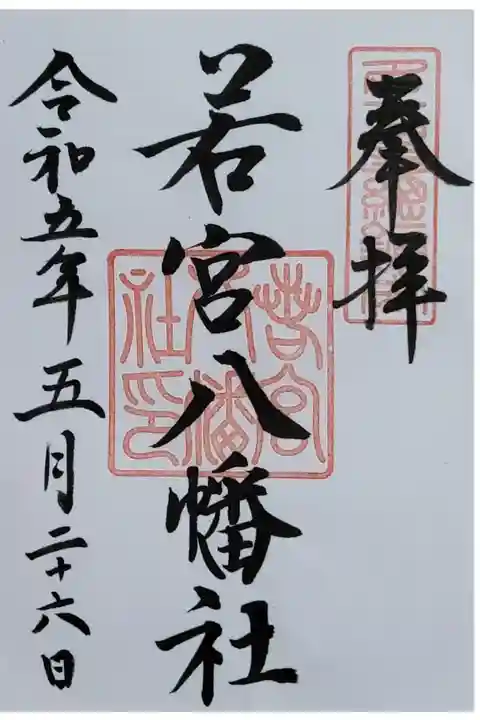 奉拝
若宮八幡社
令和五年五月二十六日
若宮八幡社印